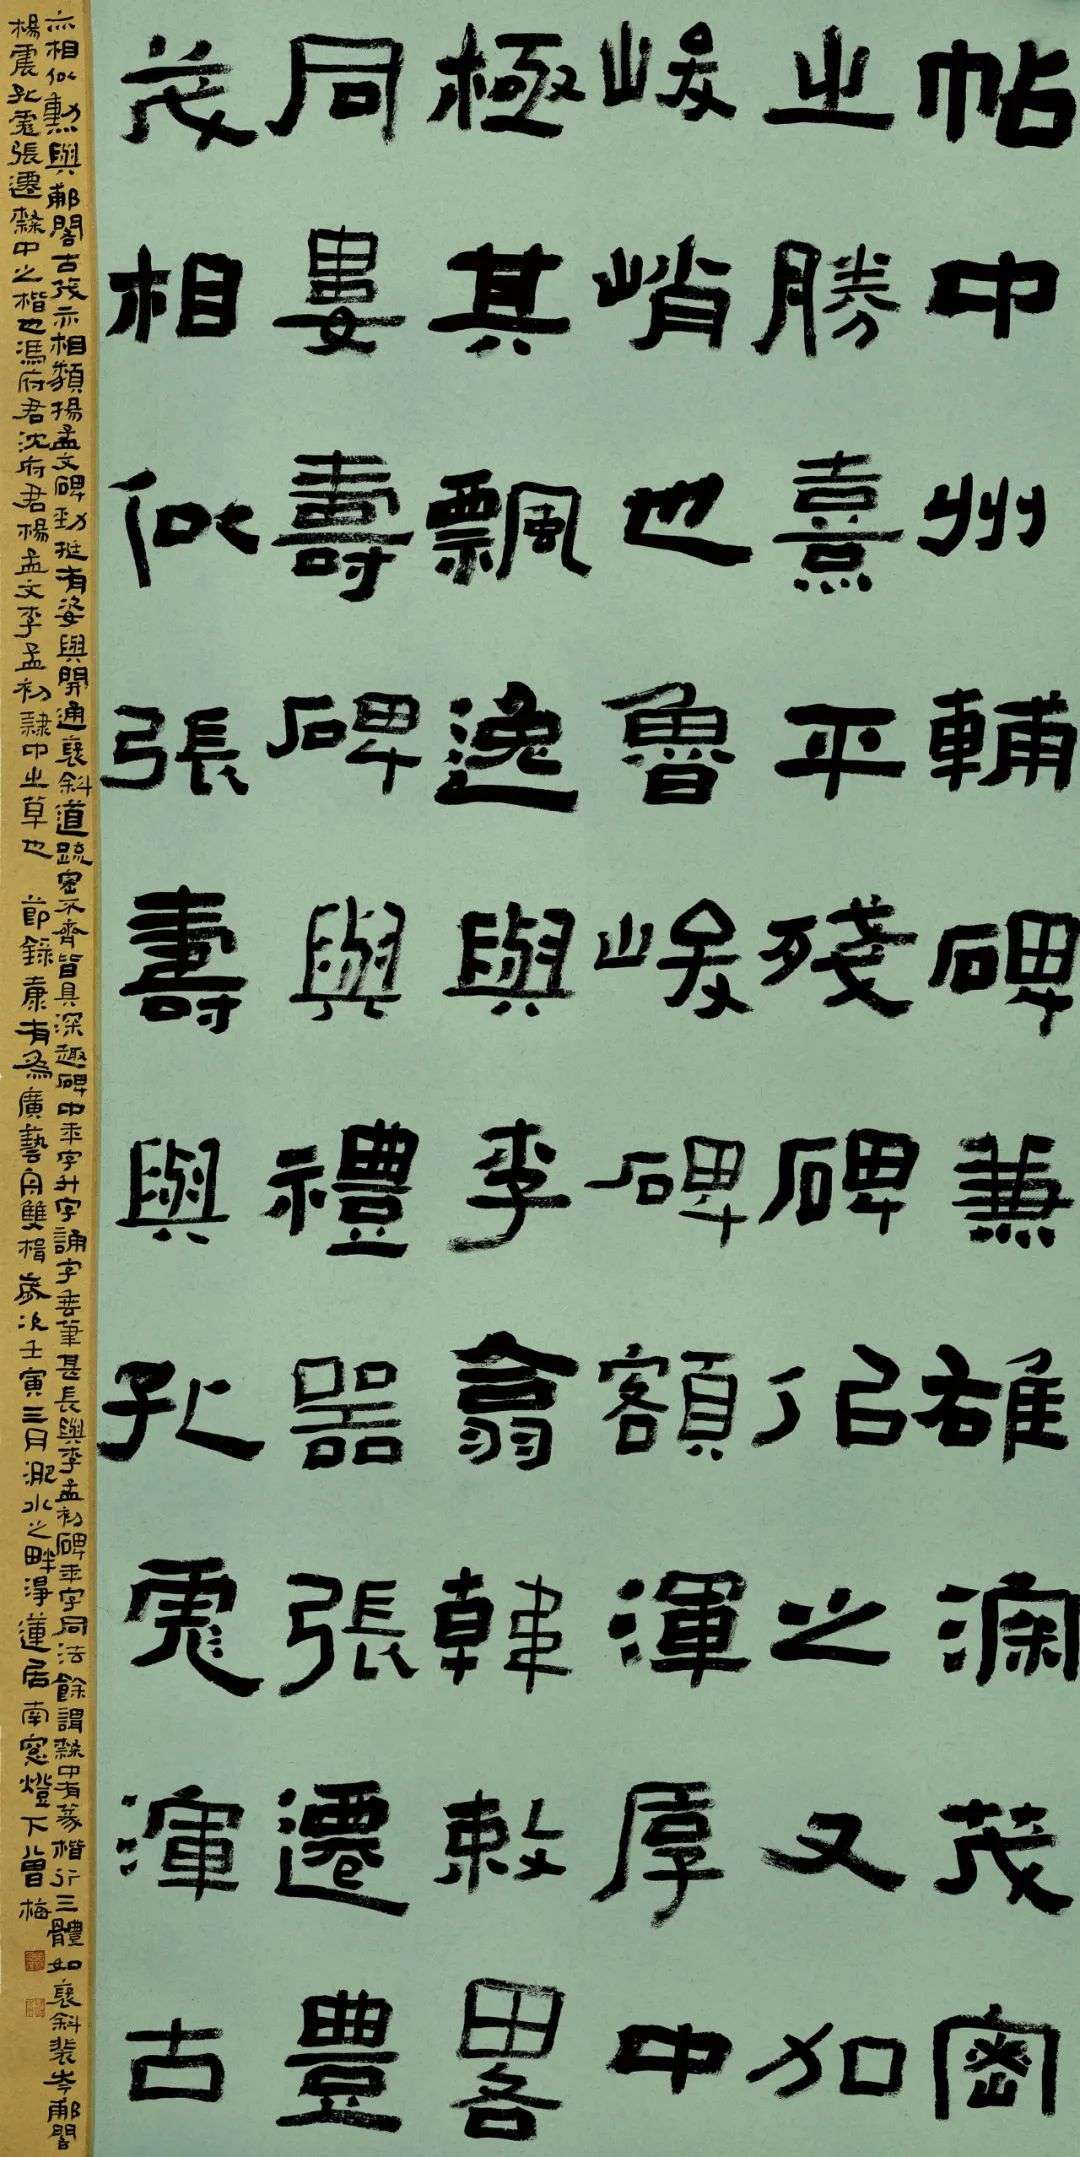 帖中州輔碑兼雄深茂密
之勝熹平殘碑仍之又加
峻峭也魯峻碑額渾厚中
極其飄逸與李翕韓敕畧
同婁壽碑與禮器張遷豐
茂相似張壽與孔彪渾古
亦相似勳與郙閣古茂亦相類揚孟文碑勁挺有姿與開通襃斜道疏密不齊皆具深趣碑中年字升字誦字垂筆甚長與李孟初碑年字同法餘謂隸中有篆楷行三體如襃斜裴岑郙閣
楊震孔彪張遷隸中之楷也馮府君沈府君楊孟文李孟初隸中之草也 節錄康有為廣藝舟雙楫歲次壬寅三月淝水之畔淨蓮居南窗燈下曾梅